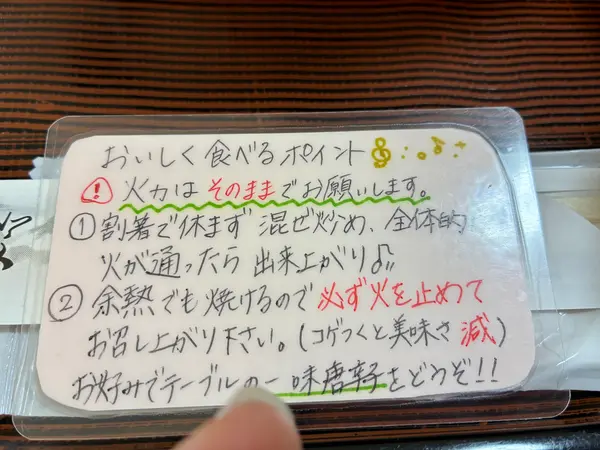 おいしく食べるポイント
! 火力はそのままでお願いします。
① 割箸で休まず混ぜ炒め、全体的
火が通ったら出来上がり♫
② 余熱でも焼けるので必ず火を止めて
お召し上がり下さい。(コゲつくと美味さ減)
お好みでテーブルの一味唐辛子をどうぞ!!